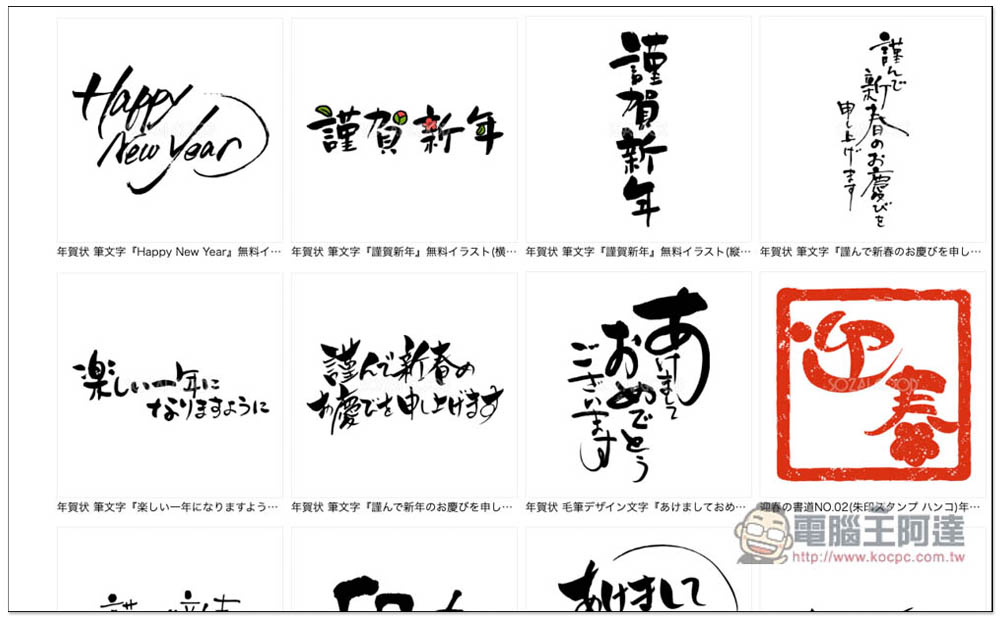 Happy
New Year
謹賀新年
謹賀新年
謹んで
新春のお慶びを
申し上げます
年賀状 筆文字『Happy New Year』無料イ…
年賀状 筆文字『謹賀新年』無料イラスト(横…
年賀状 筆文字『謹賀新年』無料イラスト(縦…
年賀状 筆文字『謹んで新春のお慶びを申し…
楽しい一年に
なりますように
謹んで新春の
お慶びを申し上げます
あけまして
おめでとう
ございます
迎春
年賀状 筆文字『楽しい一年になりますよう…
年賀状 筆文字『謹んで新年のお慶びを申し…
年賀状 毛筆デザイン文字『あけましておめ…
迎春の書道NO.02(朱印スタンプ ハンコ)年…
電腦王阿達
http://www.kocpc.com.tw
あけまして